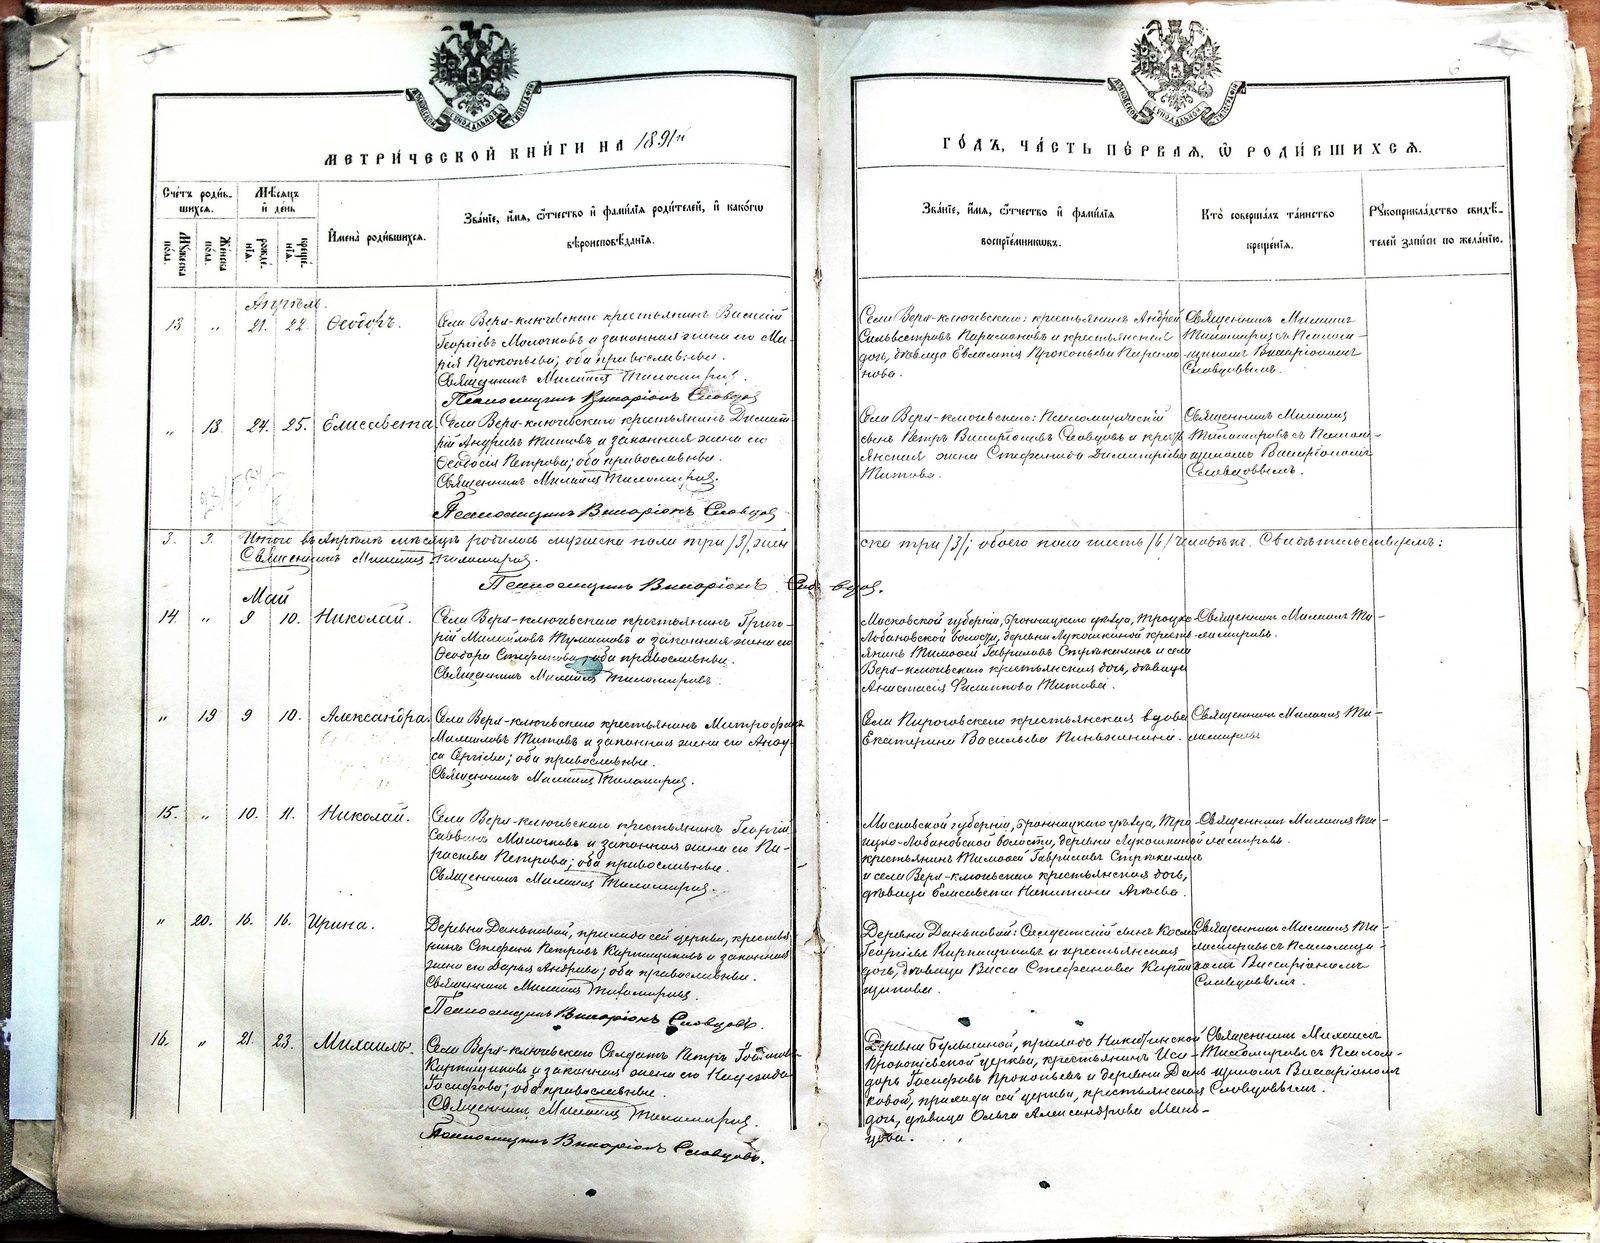 МЕТРИ́ЧЕСКОЙ КНИ́ГИ НА 1891й
ГО́ДЪ, ЧА́СТЬ ПЕ́РВАѦ, Ѡ҆ РОДИ́ВШИХСѦ.
Сче́тъ роди́в-
шихсѧ.
Мꙋ́жеска
пола.
Же́нска
пола.
Мѣ́сѧцъ
и҆ де́нь
рожде́-
нїѧ.
креще́-
нїѧ.
И҆мена̀ роди́вшихсѧ.
Зва́нїе, и҆́мѧ, ѻ҆́тчество и҆ фами́лїѧ роди́телей, и҆ како́гѡ
вѣроисповѣ́данїѧ.
Зва́нїе, и҆́мѧ, ѻ҆́тчество и҆ фами́лїѧ
воспрїе́мникѡвъ.
Кто̀ соверша́лъ та́инство
креще́нїѧ.
Рꙋкоприкла́дство свидѣ́-
телей за́писи по жела́нїю.
Апрѣль.
13 „ 21. 22 Ѳеодоръ.
Села Верх-ключевскаго крестьянинъ Василій
Георгіевъ Молочковъ и законная жена его Ма-
рія Прокопьева; оба православные.
Священникъ Михаилъ Тихомировъ.
Псаломщикъ Виссаріонъ Словцовъ
Села Верх-ключевскаго: крестьянинъ Андрей
Сильвестровъ Парамоновъ и крестьянская
дочь, дѣвица Евлампія Прокопьева Парамо-
нова.
Священникъ Михаилъ
Тихомировъ съ Псалом-
щикомъ Виссаріономъ
Словцовымъ.
„ 18 24. 25. Елисавета
Села Верх-ключевскаго крестьянинъ Димит-
рій Андреевъ Титовъ и законная жена его
Ѳеодосія Петрова; оба православные.
Священникъ Михаилъ Тихомировъ.
Псаломщикъ Виссаріонъ Словцовъ
Села Верх-ключевскаго: Псаломщическій
сынъ Петръ Виссаріоновъ Словцовъ и кресть-
янская жена Стефанида Димитріева
Титова.
Священникъ Михаилъ
Тихомировъ съ Псалом-
щикомъ Виссаріономъ
Словцовымъ.
3. 3. Итого въ Апрѣлѣ мѣсяцѣ родилось мужеска пола три /3/, жен
ска три /3/; обоего пола шесть /6/ человѣкъ. Свидѣтельствуемъ:
Священникъ Михаилъ Тихомировъ.
Псаломщикъ Виссаріонъ Словцовъ.
Май
14. „ 9 10. Николай.
Села Верх-ключевскаго крестьянинъ Григо-
рій Михайловъ Тумановъ и законная жена его
Ѳеодора Стефанова; оба православные.
Священникъ Михаилъ Тихомировъ.
Московской губерніи, Бронницкаго уѣзда, Троицко-
Лобановской волости, деревни Лукошкиной кресть-
янинъ Тимоѳей Гавриловъ Стрѣкалинъ и села
Верх-ключевскаго крестьянская дочь, дѣвица
Анастасія Филиппова Титова.
Священникъ Михаилъ Ти-
хомировъ.
„ 19 9 10. Александра.
Села Верх-ключевскаго крестьянинъ Митрофанъ
Михайловъ Титовъ и законная жена его Анфу-
са Сергіева; оба православные.
Священникъ Михаилъ Тихомировъ.
Села Пироговскаго крестьянская вдова
Екатерина Васильева Пинженина.
Священникъ Михаилъ Ти-
хомировъ
15. „ 10. 11. Николай.
Села Верх-ключевскаго крестьянинъ Георгій
Саввинъ Молочковъ и законная жена его Па-
раскева Петрова; оба православные.
Священникъ Михаилъ Тихомировъ.
Московской губерніи, Бронницкаго уѣзда, Тро-
ицко-Лобановской волости, деревни Лукошкиной
крестьянинъ Тимоѳей Гавриловъ Стрѣкалинъ
и села Верх-ключевскаго крестьянская дочь,
дѣвица Елисавета Никитина
Священникъ Михаилъ Ти-
хомировъ.
„ 20. 16. 16. Ирина.
Деревни Даньковой, прихода сей церкви, крестья-
нинъ Стефанъ Петровъ Кирпищиковъ и законная
жена его Дарья Андреева; оба православные.
Священникъ Михаилъ Тихомировъ.
Псаломщикъ Виссаріонъ Словцовъ.
Деревни Даньковой: Солдатскій сынъ Косма
Георгіевъ Кирпищиковъ и крестьянская
дочь, дѣвица Васса Стефанова Кирпи-
щикова.
Священникъ Михаилъ Ти-
хомировъ съ Псаломщи-
комъ Виссаріономъ
Словцовымъ.
16. „ 21. 23. Михаилъ.
Села Верх-ключевскаго Солдатъ Петръ
Кирпищиковъ и законная жена его Надежда
Іосифова; оба православные.
Священникъ Михаилъ Тихомировъ.
Псаломщикъ Виссаріонъ Словцовъ.
Деревни прихода
Прокопіевской церкви, крестьянинъ Иси-
доръ Іосифовъ Прокопьевъ и деревни Дань-
ковой, прихода сей церкви, крестьянская
дочь, дѣвица Ольга Александрова Маль-
цова.
Священникъ Михаилъ
Тихомировъ съ Псалом-
щикомъ Виссаріономъ
Словцовымъ.